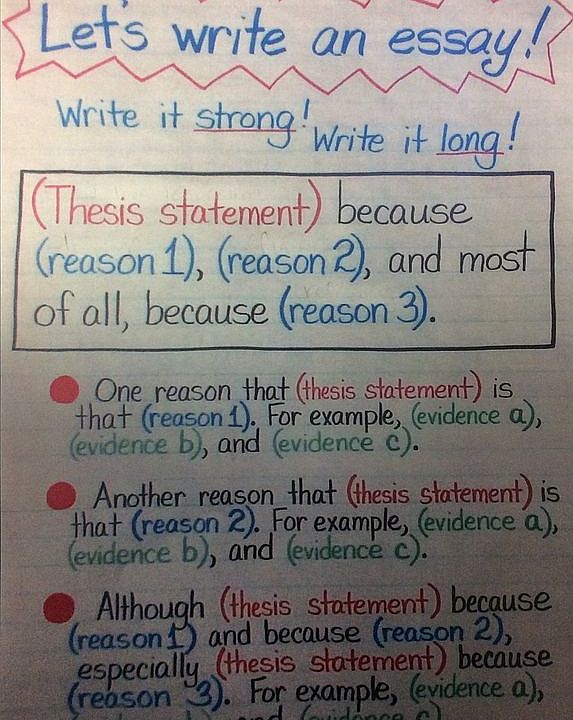 Let's write an essay!
Write it strong! Write it long!
(Thesis statement) because
(reason 1), (reason 2), and most
of all, because (reason 3).
One reason that (thesis statement) is
that (reason 1). For example, (evidence a),
(evidence b), and (evidence c).
Another reason that (thesis statement) is
that (reason 2). For example, (evidence a),
(evidence b), and (evidence c).
Although (thesis statement) because
(reason 1) and because (reason 2),
especially (thesis statement) because
(reason 3). For example, (evidence a),
and